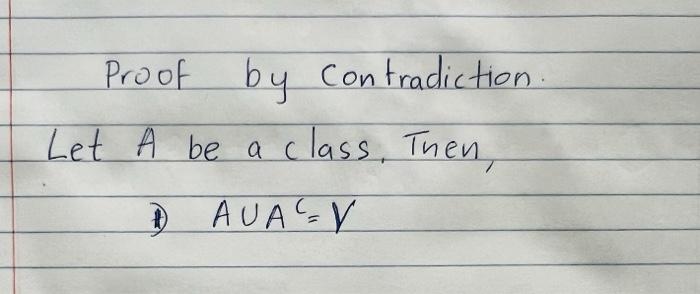 Proof by Contradiction.
Let A be a class. Then,
1) A ∪ Aᶜ = V